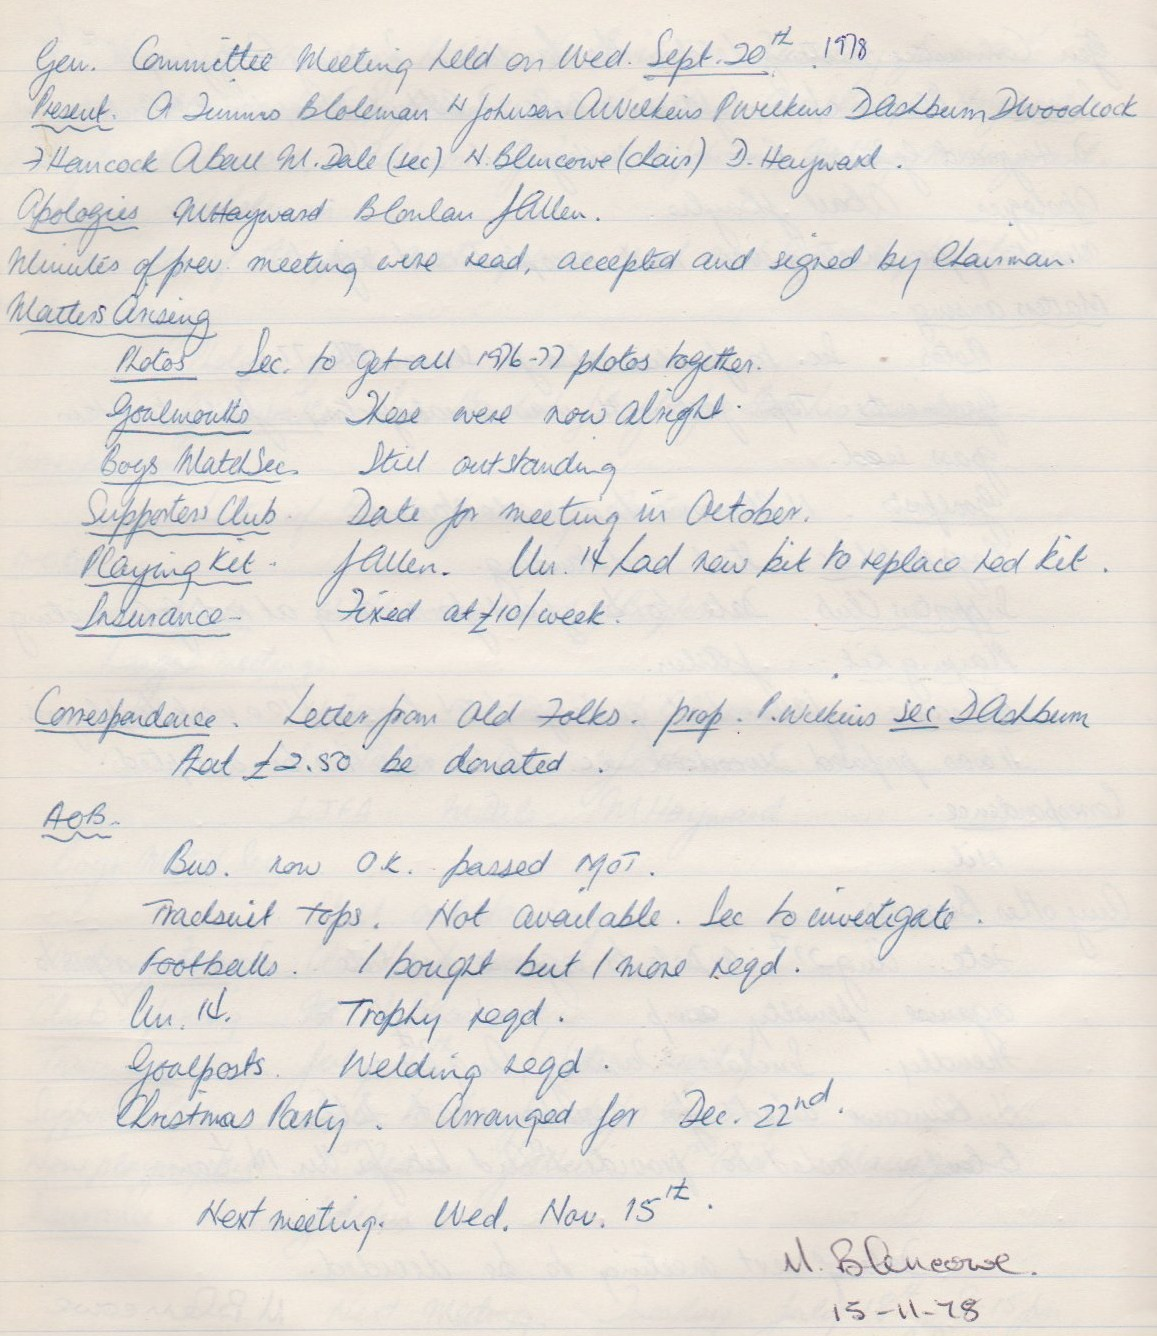 Gen. Committee Meeting held on Wed. Sept. 20th. 1978
Present. A Timms B Coleman H Johnson A Wilkins P Wilkins D Ashburn D Woodcock
F Hancock A Ball M. Dale (sec) H. Blencowe (chair) D. Hayward.
Apologies M Hayward B Conlan J Allen.
Minutes of prev. meeting were read, accepted and signed by Chairman.
Matters Arising
Photos Sec. to get all 1976-77 photos together.
Goalmouths These were now alright.
Boys Match Sec. Still outstanding
Supporters Club. Date for meeting in October.
Playing Kit - J Allen. Un. 14 had new kit to replace red kit.
Insurance - Fixed at £10/week.
Correspondence. Letter from Old Folks. prop. P. Wilkins sec D Ashburn
that £2.50 be donated.
AOB.
Bus. now O.K. passed MOT.
Tracksuit tops. Not available. Sec to investigate.
Footballs. 1 bought but 1 more reqd.
Un. 14. Trophy reqd.
Goalposts. Welding reqd.
Christmas Party. Arranged for Dec. 22nd.
Next meeting. Wed. Nov. 15th.
H. Blencowe.
15-11-78